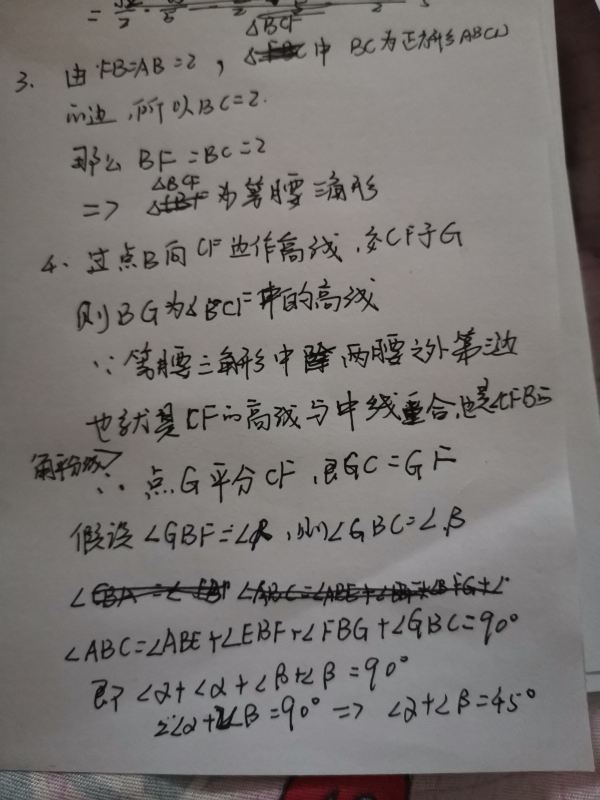 3. 由FB=AB=2, △BCF中 BC为正方形ABCD
的边,所以BC=2.
那么 BF=BC=2
=> △BCF为等腰三角形
4. 过点B向CF边作高线,交CF于G
则BG为△BCF中的高线
∵等腰三角形中除两腰之外第三边
也就是CF的高线与中线重合,也是∠CFB的
角平分线
∴点G平分CF,即GC=GF
假设∠GBF=∠β,则∠GBC=∠β
∠ABC=∠ABE+∠EBF+∠FBG+∠GBC=90°
即∠α+∠α+∠β+∠β=90°
2∠α+2∠β=90° => ∠α+∠β=45°